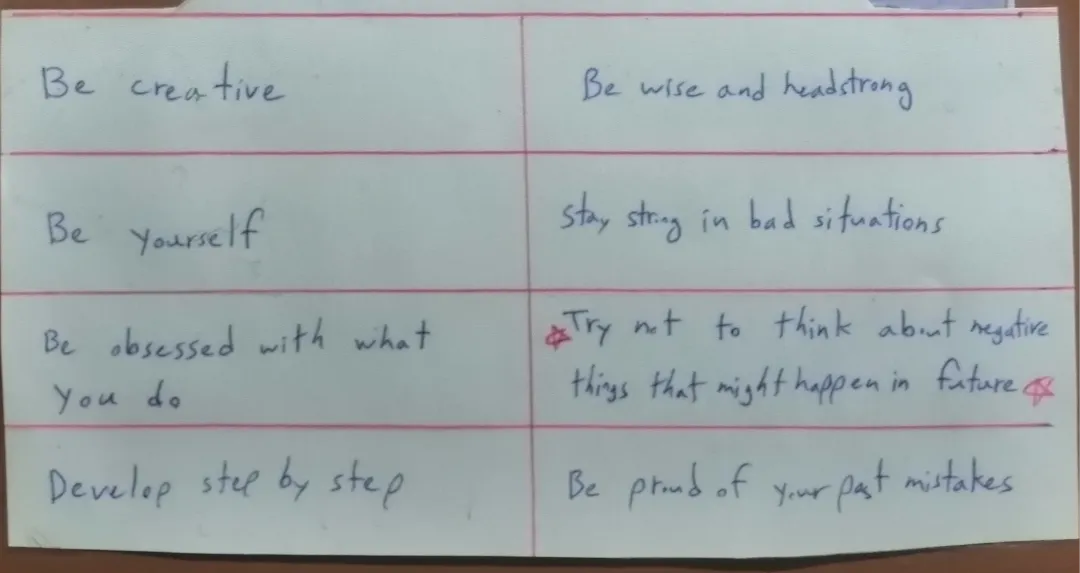 Be creative
Be wise and headstrong
Be yourself
Stay string in bad situations
Be obsessed with what
you do
Try not to think about negative
things that might happen in future
Develop step by step
Be proud of your past mistakes